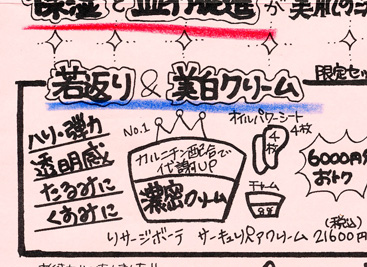 保湿と血行促進が美肌の
若返り & 美白クリーム
限定セッ
ハリ・弾力
透明感
たるみに
くすみに
No.1
カルニチン配合で
代謝UP
濃密クリーム
オイルパワーシート
4枚
4枚
チャーム
6000円分
おトク
(税込)
リサージボーテ サーキュリペアクリーム 21600円